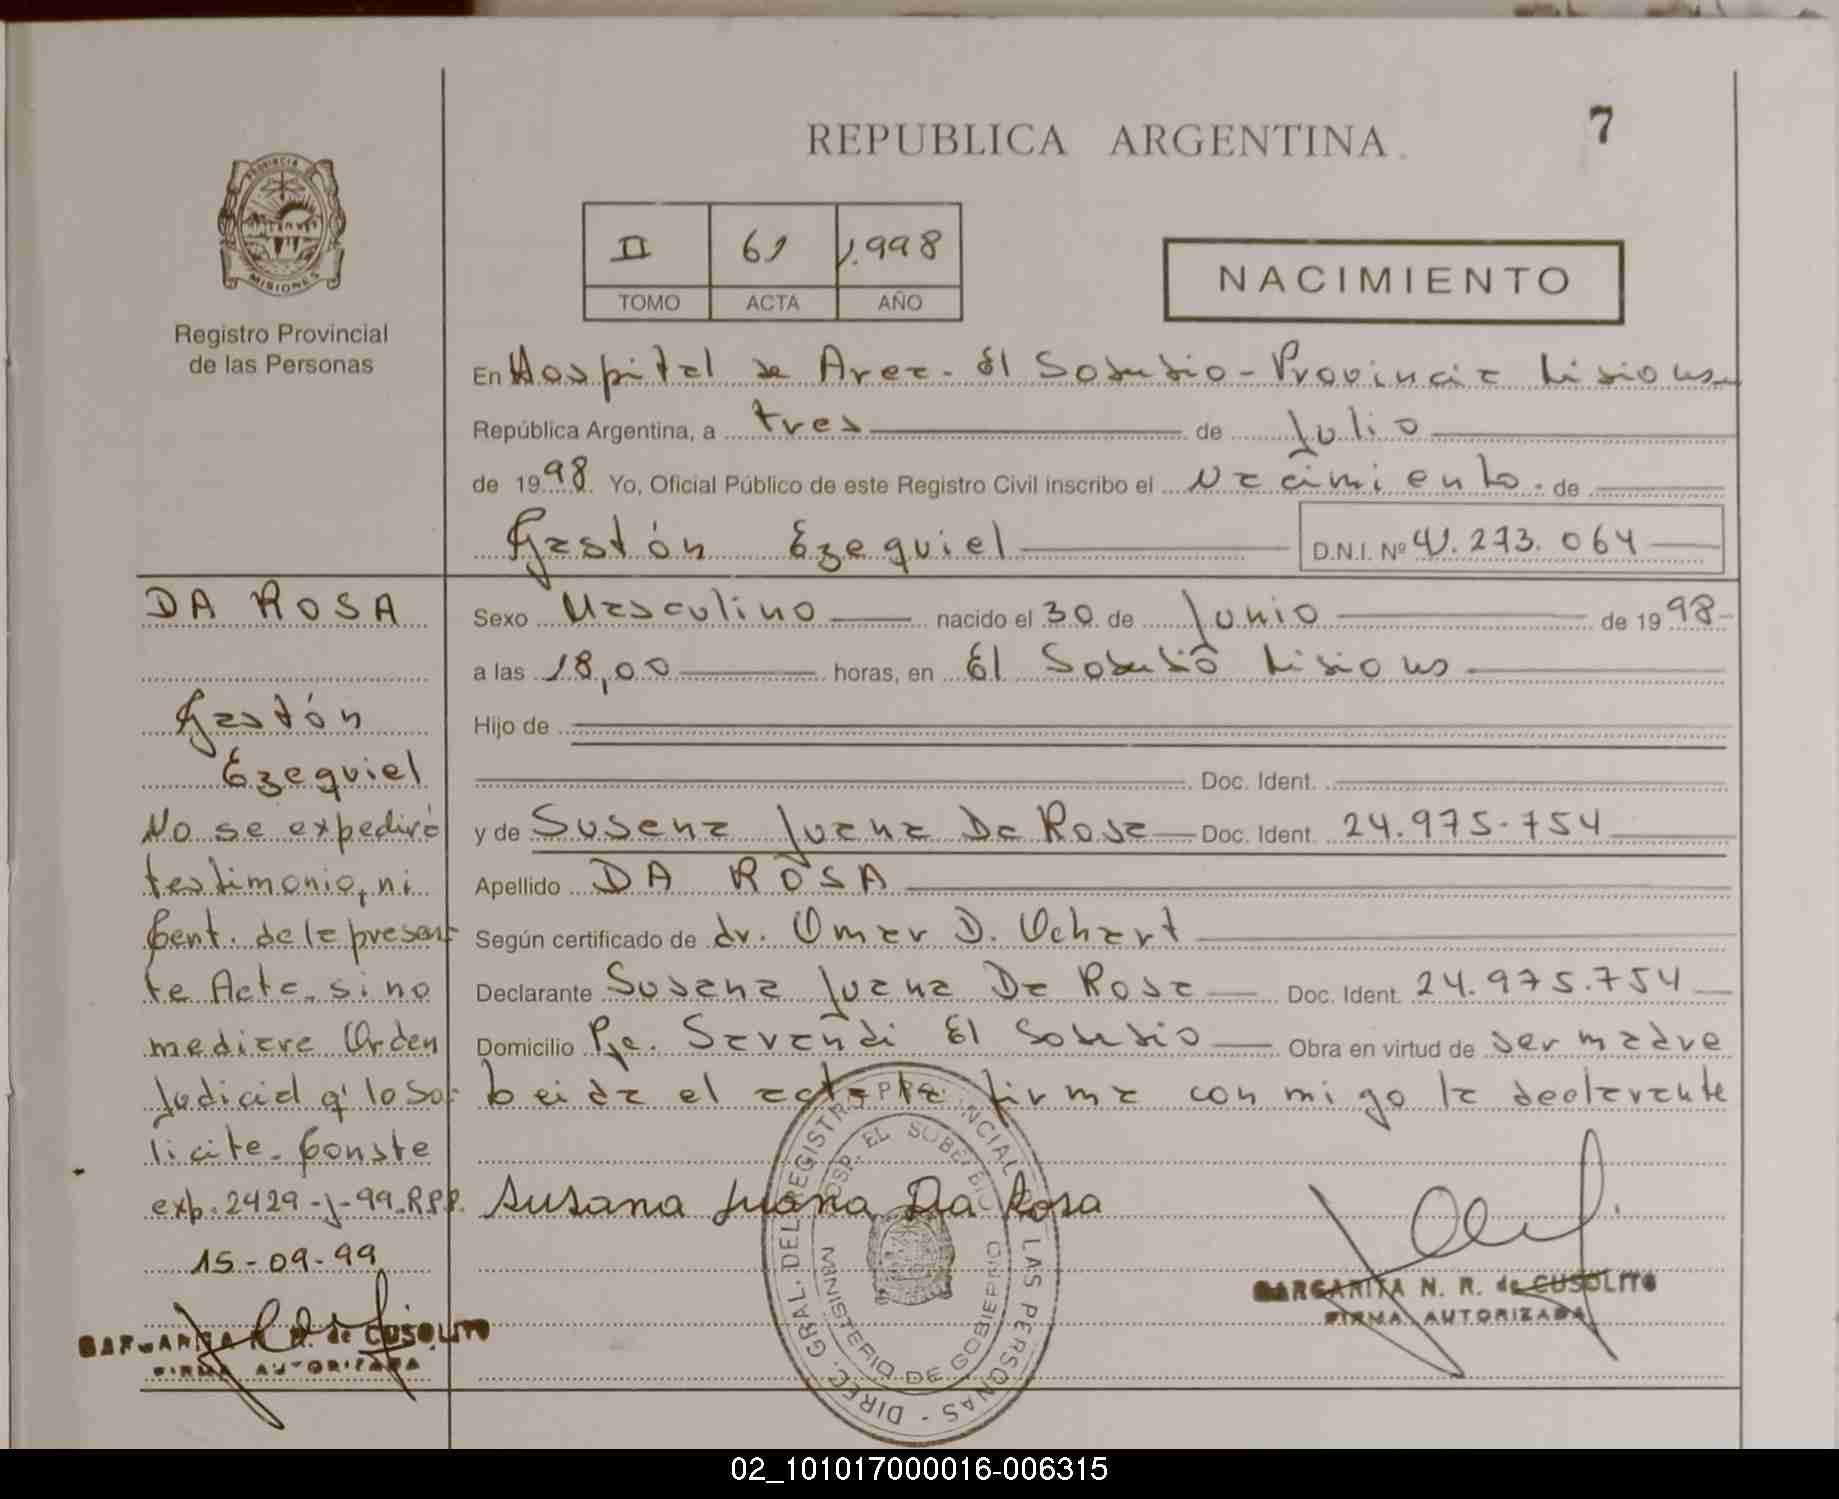 7
REPUBLICA ARGENTINA
PROVINCIA
MISIONES
Registro Provincial
de las Personas
II 61 1.998
TOMO ACTA AÑO
NACIMIENTO
En Hospital de Area - El Soberbio - Provincia Misiones
República Argentina, a tres de Julio
de 1998 Yo, Oficial Público de este Registro Civil inscribo el Nacimiento de
Gastón Ezequiel D.N.I. Nº 41.273.064
Sexo Masculino nacido el 30 de Junio de 1998
a las 18,00 horas, en El Soberbio Misiones
Hijo de
Doc. Ident.
y de Susana Juana Da Rosa Doc. Ident. 24.975.754
Apellido DA ROSA
Según certificado de dr. Omar D. Ochart
Declarante Susana Juana Da Rosa Doc. Ident. 24.975.754
Domicilio Pje. Sarandi El Soberbio Obra en virtud de ser madre
Leida el acta la firma conmigo la declarante
Susana Juana Da Rosa
MARGARITA N. R. de CUSOLITO
FIRMA AUTORIZADA
DIREC. GRAL. DEL REGISTRO PROVINCIAL LAS PERSONAS
HOSP. EL SOBERBIO
MINISTERIO DE GOBIERNO
DA ROSA
Gastón
Ezequiel
No se expedirá
testimonio, ni
Cert. de la presen-
te Acta, si no
mediare Orden
Judicial q' lo so-
licite. Conste
exp. 2429-J-99-R.P.P.
15-09-99
MARGARITA N. R. de CUSOLITO
FIRMA AUTORIZADA
02_101017000016-006315